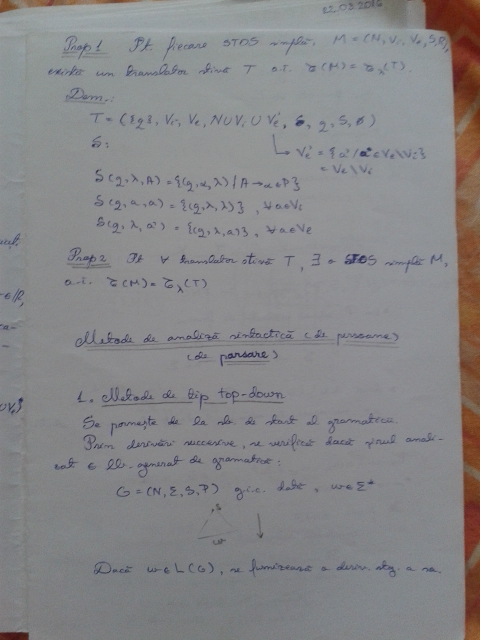 12.03.2016
Prop 1 Pt. fiecare STDS simplă, M = (N, Vi, Ve, S, P),
există un translator stivă T a.î. τ(M) = τλ(T).
Dem.:
T = ({q}, Vi, Ve, N∪Vi∪Ve', δ, q, S, ∅)
Ve' = {a' / a ∈ Ve\Vi}
δ:
= Ve\Vi
δ(q, λ, A) = {(q, α, λ) / A → α ∈ P}
δ(q, a, a) = {(q, λ, λ)}, ∀ a ∈ Vi
δ(q, λ, a') = {(q, λ, a)}, ∀ a ∈ Ve
Prop 2 Pt ∀ translator stivă T, ∃ o STDS simplă M,
a.î. τ(M) = τλ(T)
Metode de analiză sintactică (de persoane)
(de parsare)
1. Metode de tip top-down
Se pornește de la sb. de start al gramaticii.
Prin derivări succesive, se verifică dacă șirul anali-
zat ∈ lb. generat de gramatică:
G = (N, Σ, S, P) g.i.c. dată, w ∈ Σ*
S
w
Dacă w ∈ L(G), se furnizează o deriv. stg. a sa